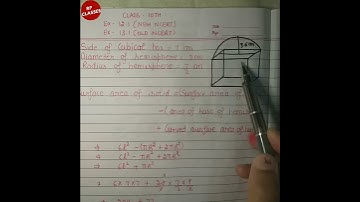 RP
CLASSES
CLASS - 10TH
Ex - 12.1 (NEW NCERT)
Ex - 13.1 (OLD NCERT)
Side of Cubical box = 7 cm
Diameter of hemisphere = 7cm
Radius of hemisphere = 7/2 cm
3.5cm
Surface area of solid = Surface area of
- (area of base of hemis
+ Curved surface area of he
⇒ 6l² - (πR² + 2πR²)
⇒ 6l² - πR² + 2πR²
⇒ 6l² + πR²
= 6×7×7 + 22/7 × 7/2 ×